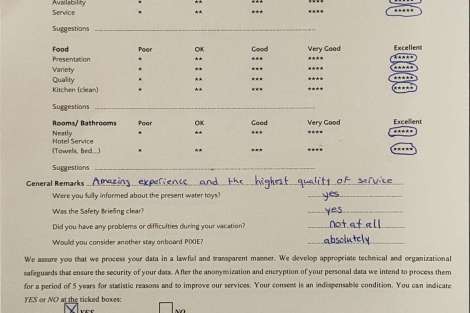 Availability * ** *** **** *****
Service * ** *** **** *****
Suggestions
Food Poor OK Good Very Good Excellent
Presentation * ** *** **** *****
Variety * ** *** **** *****
Quality * ** *** **** *****
Kitchen (clean) * ** *** **** *****
Suggestions
Rooms/ Bathrooms Poor OK Good Very Good Excellent
Neatly * ** *** **** *****
Hotel Service
(Towels, Bed...) * ** *** **** *****
Suggestions
General Remarks Amazing experience and the highest quality of service
Were you fully informed about the present water toys? yes
Was the Safety Briefing clear? yes
Did you have any problems or difficulties during your vacation? not at all
Would you consider another stay onboard PIXIE? absolutely
We assure you that we process your data in a lawful and transparent manner. We develop appropriate technical and organizational
safeguards that ensure the security of your data. After the anonymization and encryption of your personal data we intend to process them
for a period of 5 years for statistic reasons and to improve our services. Your consent is an indispensable condition. You can indicate
YES or NO at the ticked boxes:
YES NO